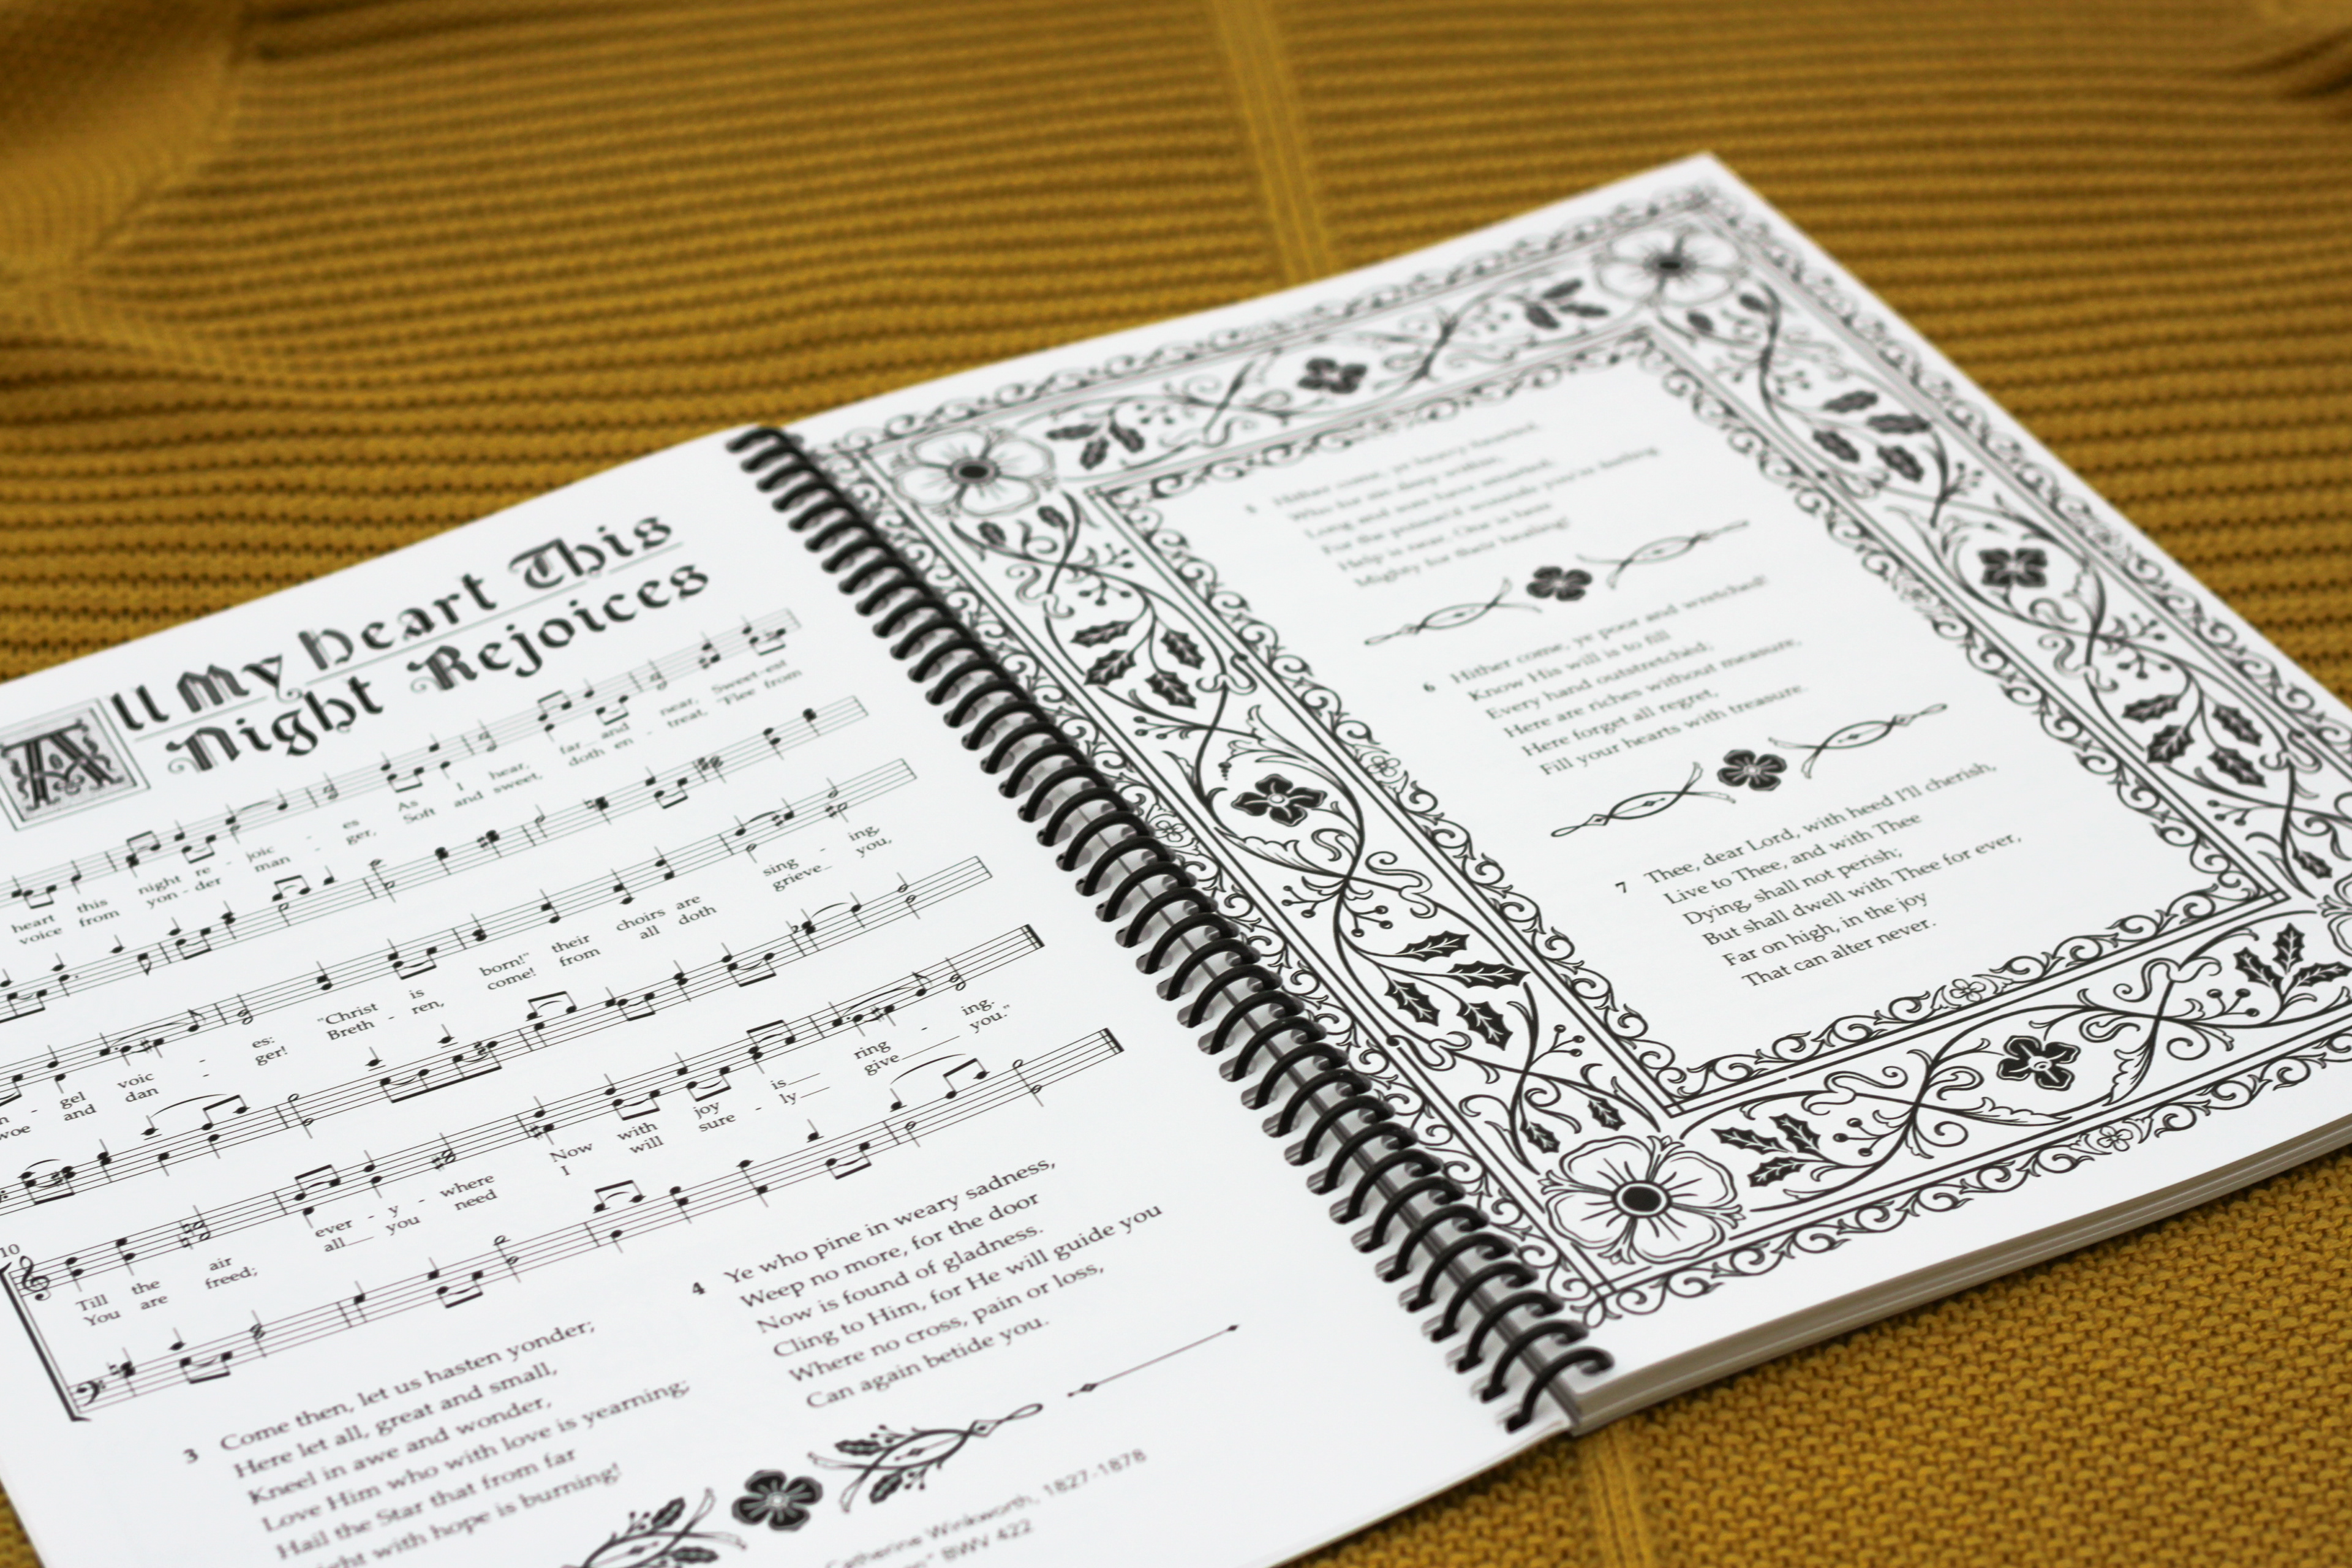 All My Heart This
Night Rejoices
heart this night re - joic - es As I hear, far and near, Sweet-est
voice from yon - der man - ger, Soft and sweet, doth en - treat, "Flee from
gel voic - es: "Christ is born!" their choirs are sing - ing,
woe and dan - ger! Breth - ren, come! from all doth grieve you,
10
Till the air ev-er - y - where Now with joy is ring - ing.
You are freed; all you need I will sure - ly give you."
3 Come then, let us hasten yonder;
Here let all, great and small,
Kneel in awe and wonder,
Love Him who with love is yearning;
Hail the Star that from far
with hope is burning!
4 Ye who pine in weary sadness,
Weep no more, for the door
Now is found of gladness.
Cling to Him, for He will guide you
Where no cross, pain or loss,
Can again betide you.
Catherine Winkworth, 1827-1878
BWV 422
5 Hither come, ye heavy hearted,
Help is near, One is here
Mighty for their healing!
6 Hither come, ye poor and wretched!
Know His will is to fill
Every hand outstretched;
Here are riches without measure,
Here forget all regret,
Fill your hearts with treasure.
7 Thee, dear Lord, with heed I'll cherish,
Live to Thee, and with Thee
Dying, shall not perish;
But shall dwell with Thee for ever,
Far on high, in the joy
That can alter never.